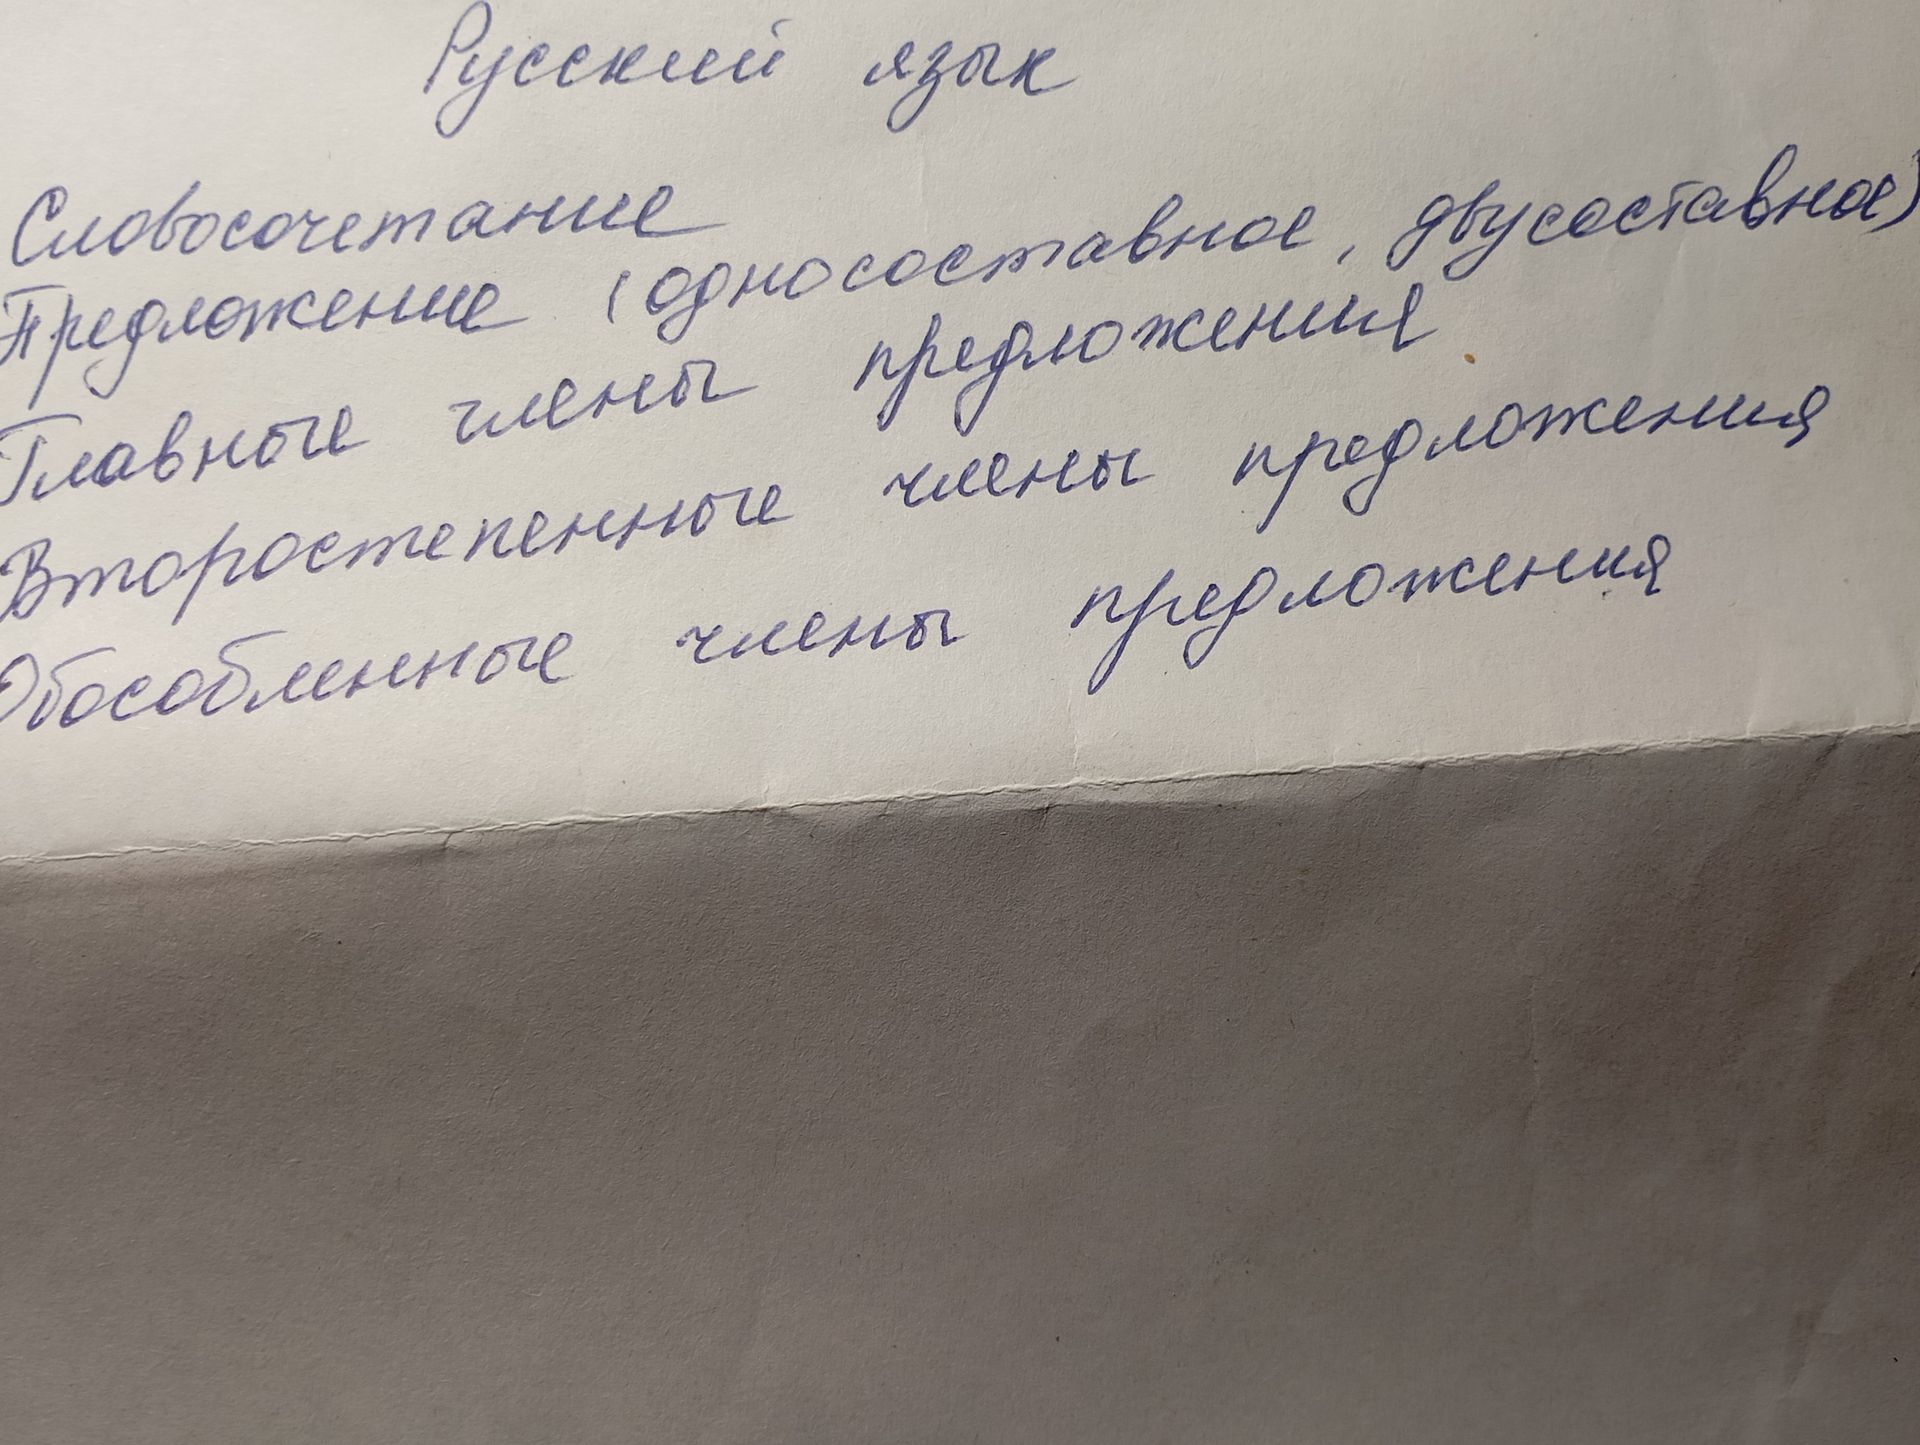 Русский язык
Словосочетание
Предложение (односоставное, двусоставное)
Главные члены предложения
Второстепенные члены предложения
Обособленные члены предложения